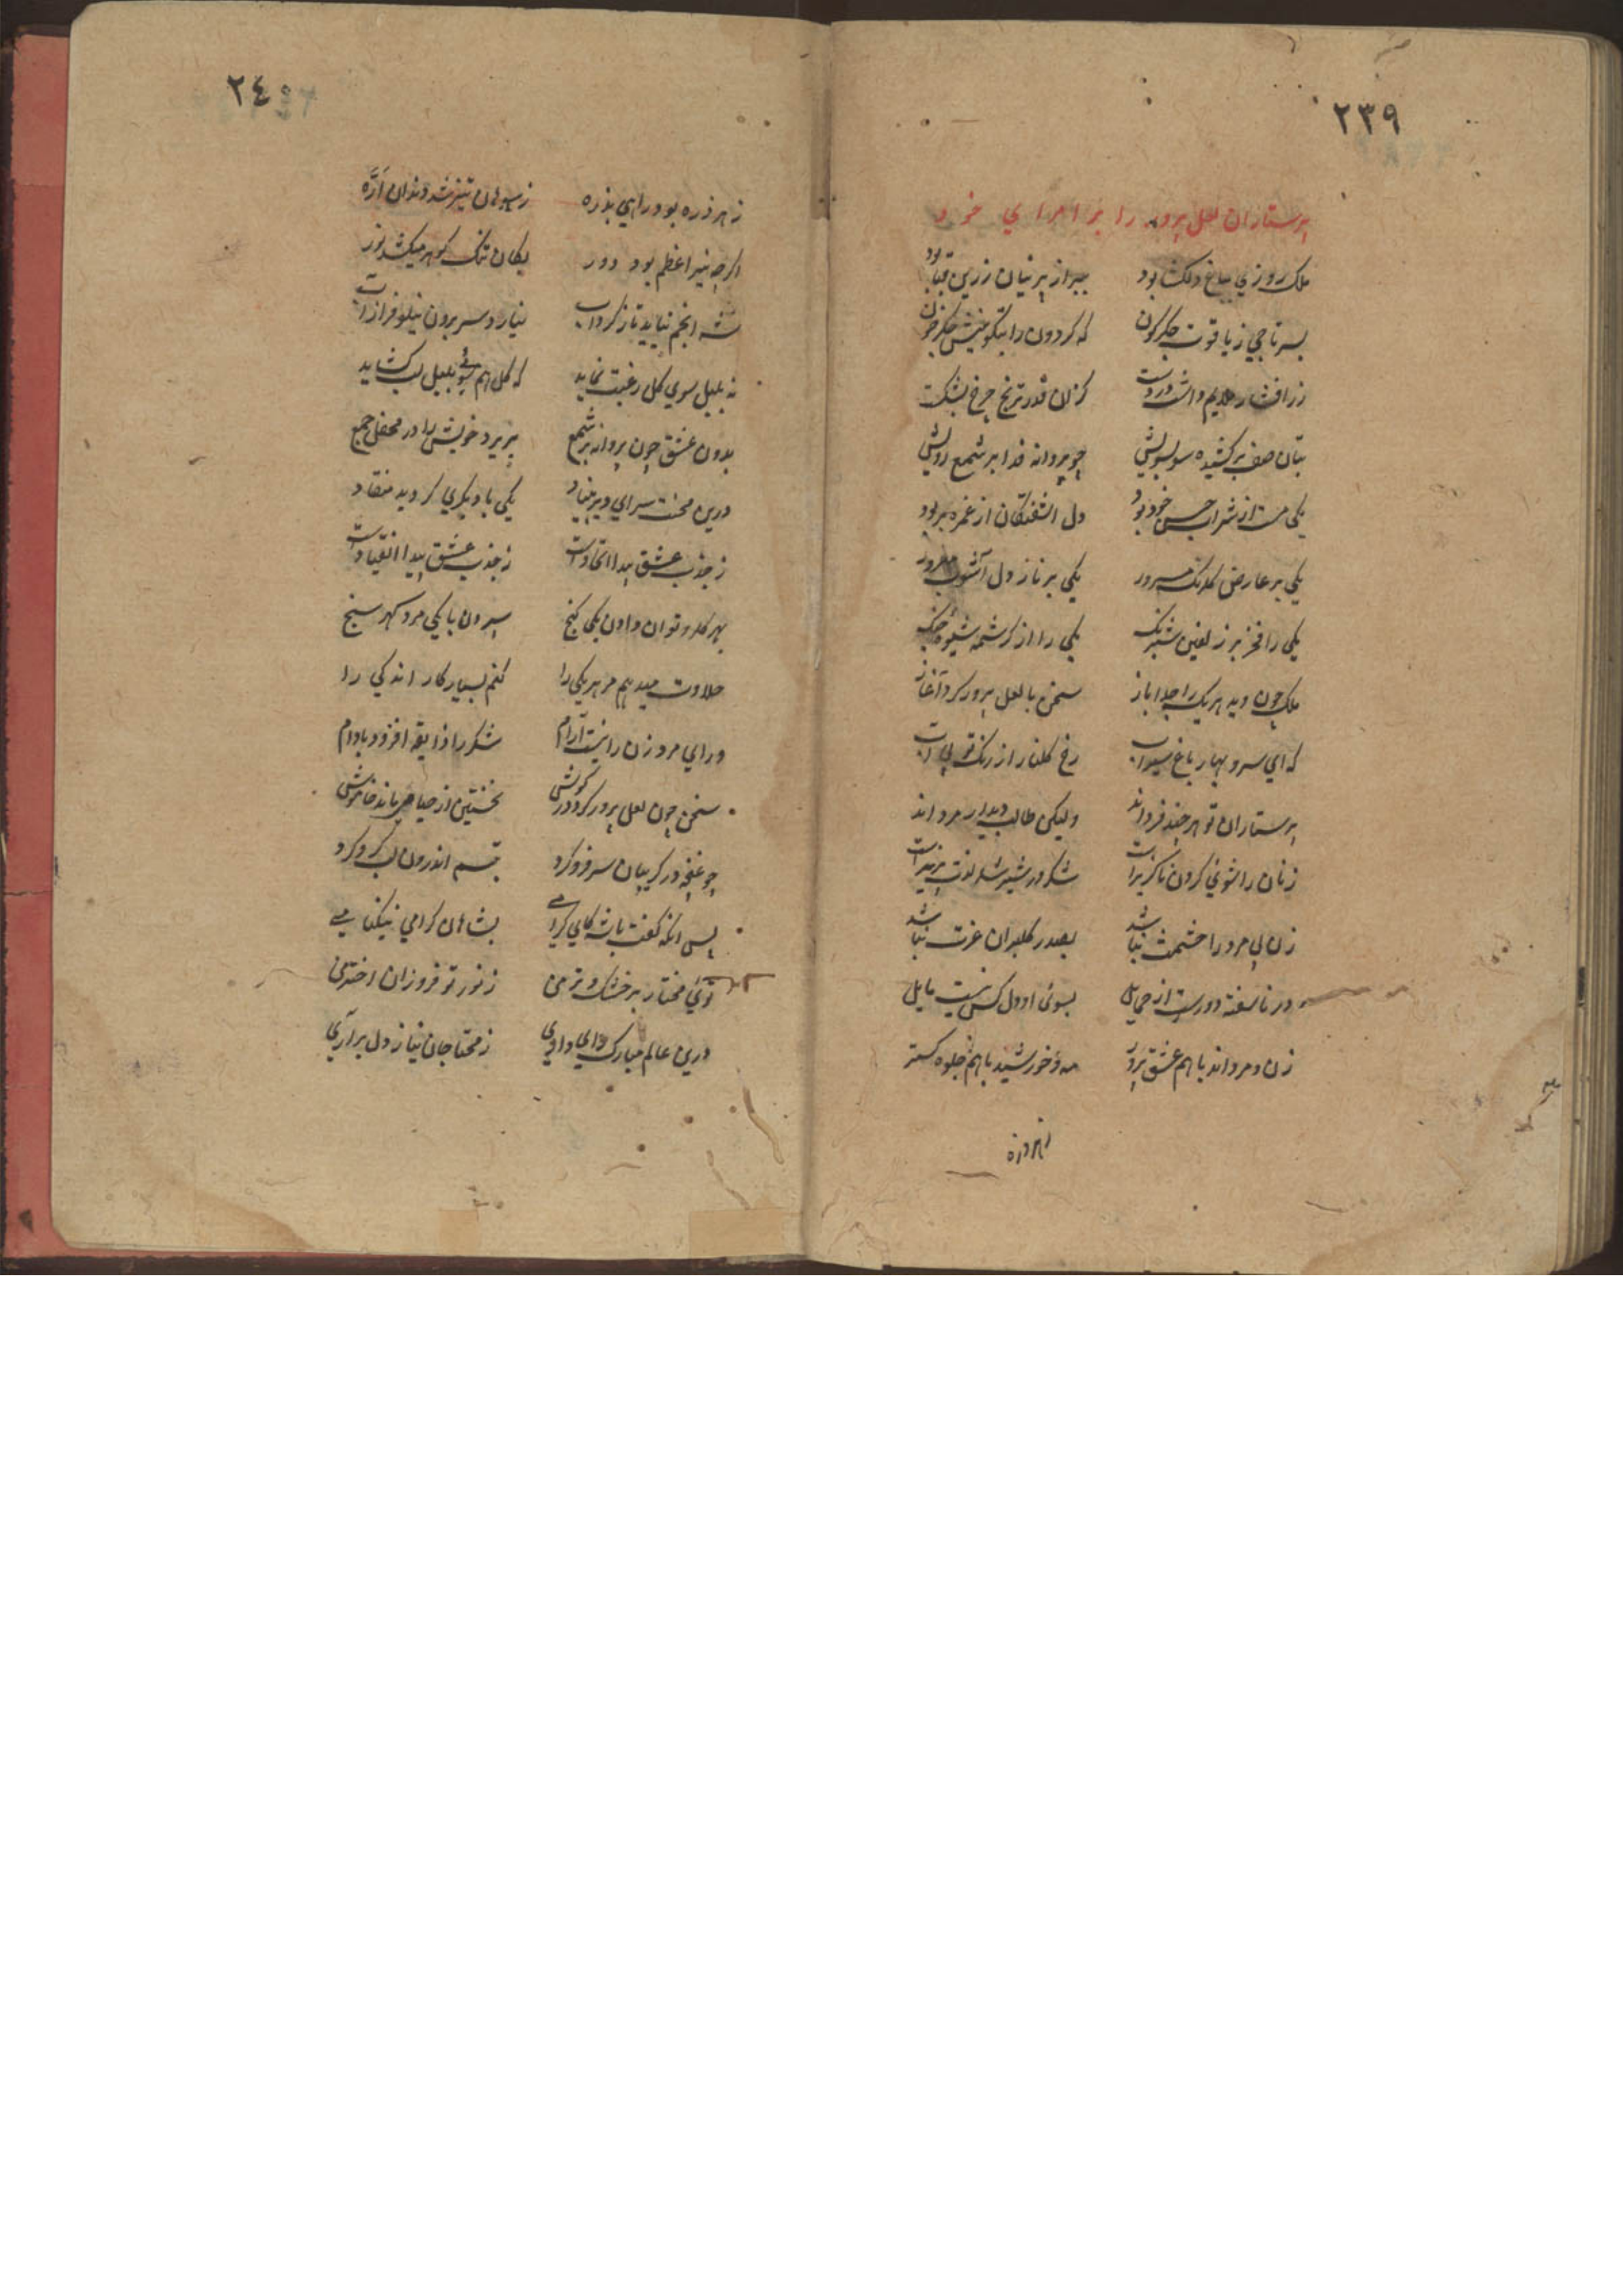 ٢٣٩
پرستاران لعل پرور را بر امرای خود
ملک روزی بباغ دلکشا بود ببر از پرنیان زرین قبا بود
بسر تاجی ز یاقوت جکرکون که کردون را بتکوینش جکر خون
زر افشار ملایم داشت در دست کزان قدر ترنج چرخ بشکست
بتان صف برکشیده سو بسویش چو پروانه فدا بر شمع رویش
یکی مست از شراب حسن خود بود دل اشفتکان از غمزه بربود
یکی بر عارض کلرنک مسرور یکی بر ناز دل آشوب مغرور
یکی را فخر بر زلفین شبرنک یکی را از کرشمه شیوه جنک
ملک چون دید هر یک را جدا ناز سخن با لعل پرور کرد آغاز
که ای سرو بهار باغ سیراب رخ کلنار از رنک تو بی آب
پرستاران تو هر چند فرداند ولیکن طالب دیدار مرداند
زنان را شوی کردن ناکزیر است شکر در شیر لذت پزیر است
زن بی مرد را حشمت نباشد بصدر کلبران عزت نباشد
در ناسفته دورست از حمایل بسوی او دل کس نیست مایل
زن و مرداند باهم عشق پرور مه و خورشید باهم جلوه کستر
ز هر ذره
٢٤٠
ز هر ذره بود راهی بذره ز سوهان تیز شد دندان ارّه
اکرچه نیر اعظم بود دور بکان سنک کوهر میکشد نور
شه انجم نیاید تا ز کرداب نیارد سر برون نیلوفر از آب
نه بلبل سوی کل رغبت نماید که کل هم سوی بلبل لب کشاید
بدون عشق چون پروانه بر شمع پرید خویش را در محفل جمع
درین محنت سرای دیر بنیاد یکی با دیکری کردید منقاد
ز جذب عشق پیدا اتحاد است ز جذب عشق پیدا انقیاد است
بهر کلرو توان دادن یکی کنج سپردن با یکی مرد کهر سنج
حلاوت میدهم مر هر یکی را کنم بسیار کار اندکی را
ورای مرد زن را نیست آرام شکر را ذایقه افزود بادام
سخن چون لعل پرور کرد در کوش نخستین از حیا می ماند خاموش
چو غنچه در کریبان سر فرو کرد تبسم اندرون لب کرو کرد
پس انکه کفت باشه کای کرامی بشاهان کرامی نیکنامی
توئی مختار بر خشک و تر من ز نور تو فروزان اختر من
درین عالم مبارک رای دادی ز محتاجان نیاز دل برآری